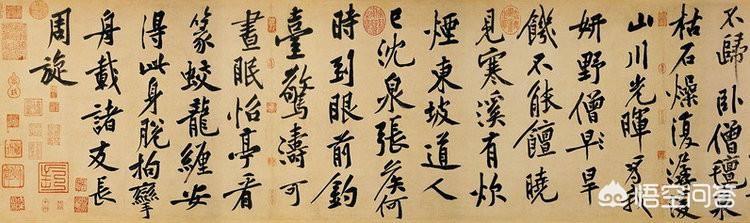 不歸臥僧氊泉
枯石燥復潺湲
山川光暉為我
妍野僧早旱
饑不能饘曉
見寒溪有炊
煙東坡道人
已沈泉張侯何
時到眼前釣
臺驚濤可
晝眠怡亭看
篆蛟龍纏安
得此身脫拘攣
舟載諸友長
周旋
悟空问答